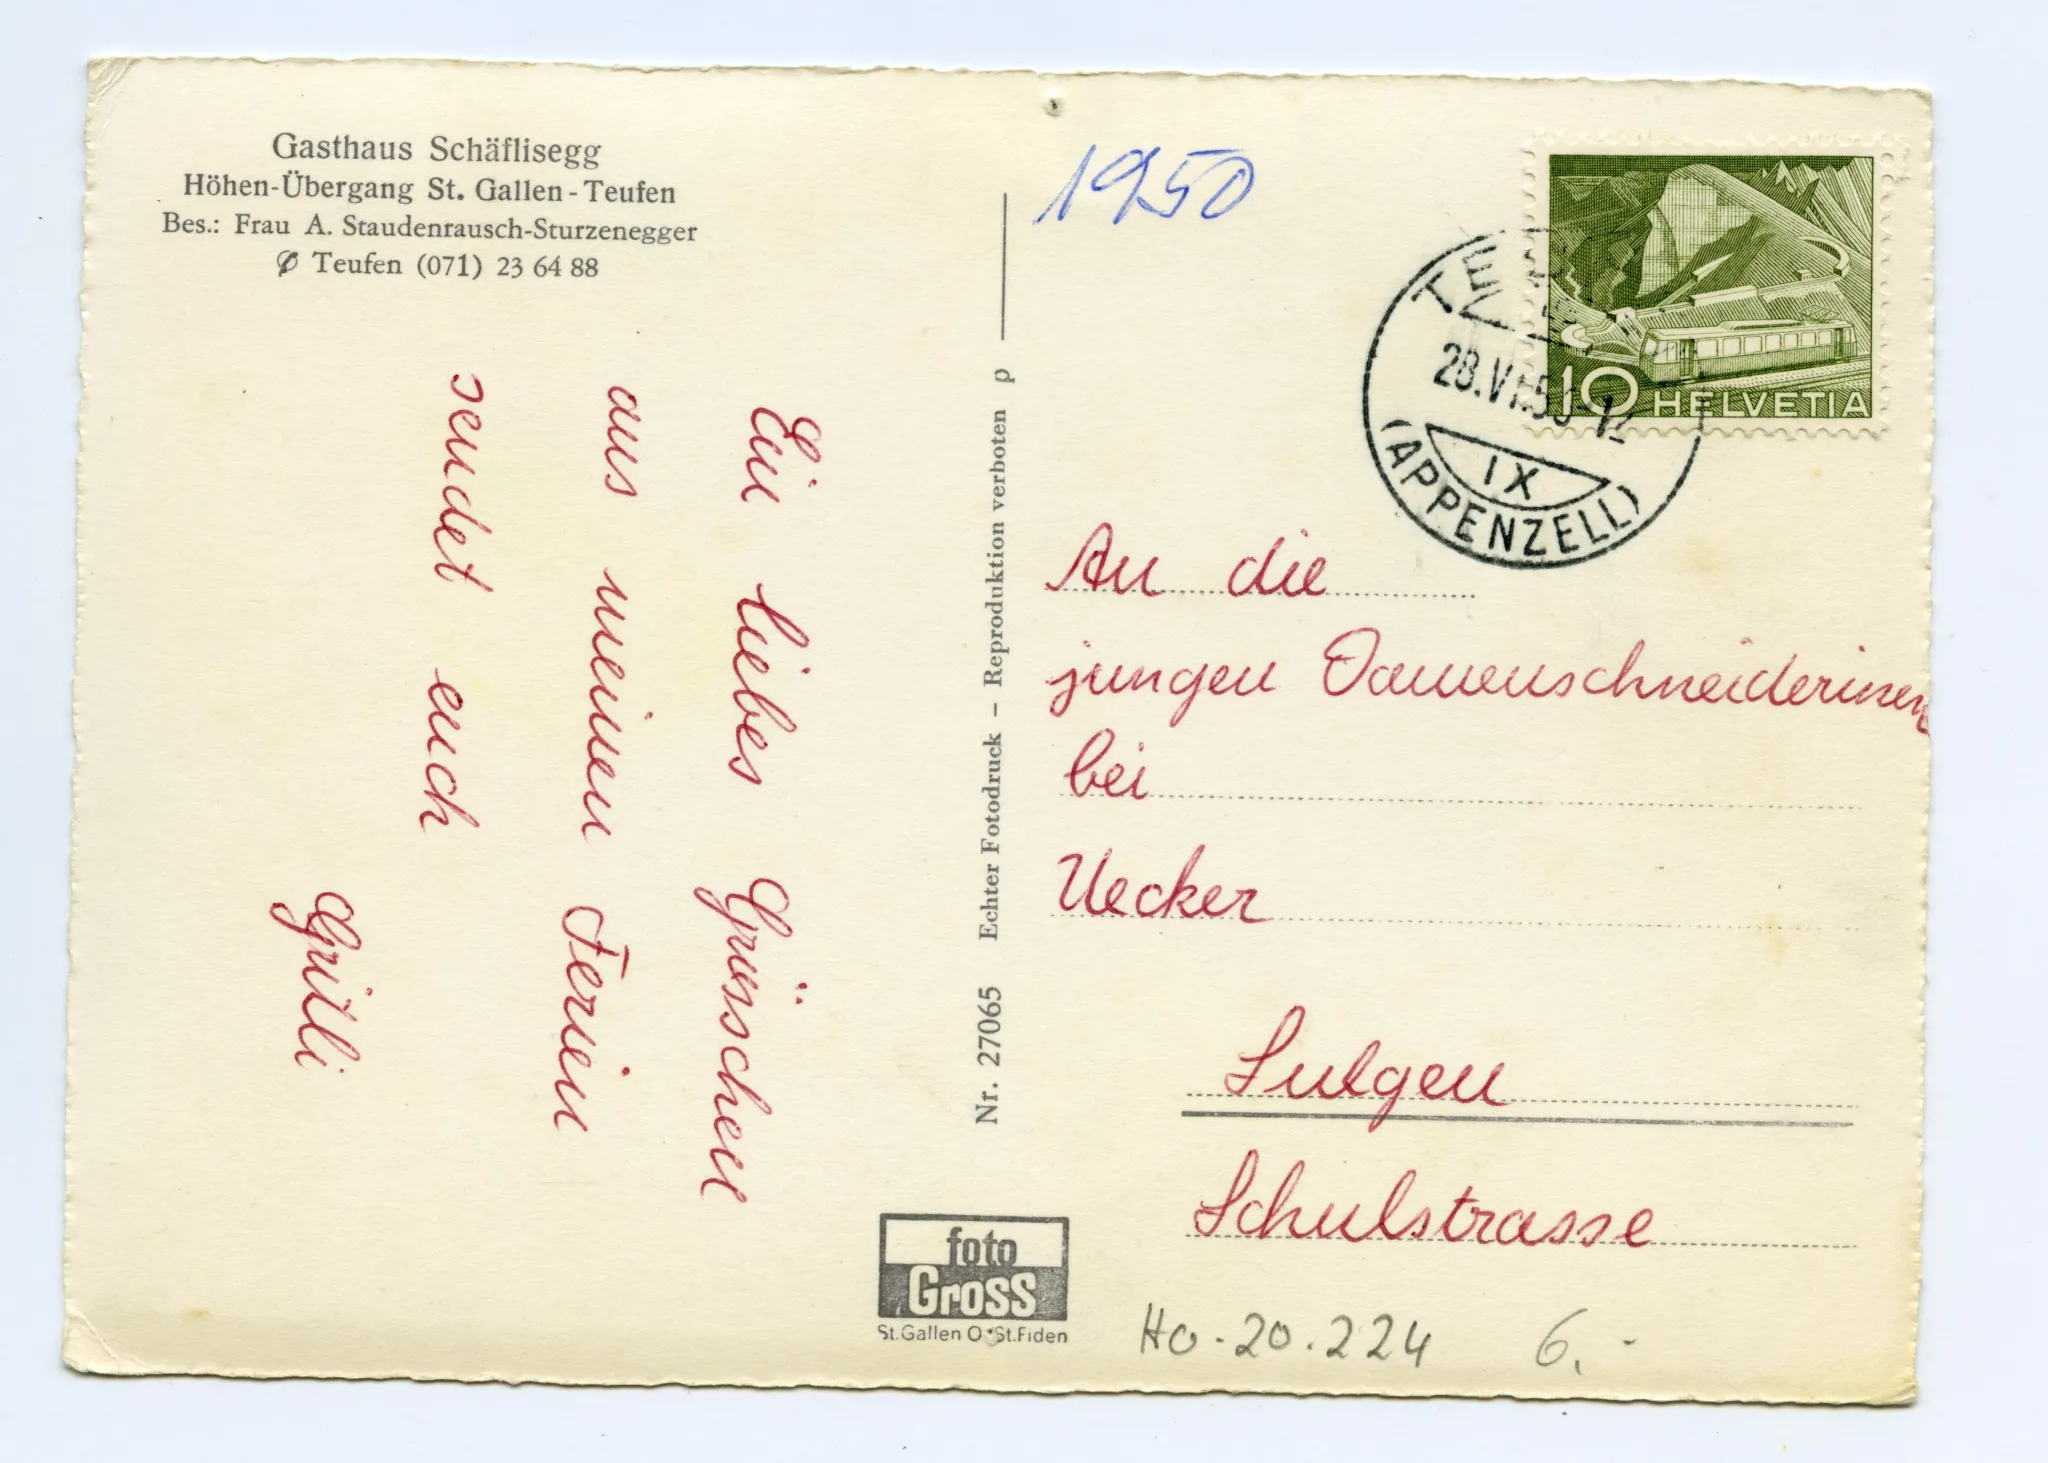 Gasthaus Schäflisegg
Höhen-Übergang St. Gallen - Teufen
Bes.: Frau A. Staudenrausch-Sturzenegger
Teufen (071) 23 64 88
Ein liebes Grüsschen
aus meinen Ferien
sendet euch
Grilli
Nr. 27065 Echter Fotodruck – Reproduktion verboten
foto
Gross
St.Gallen O · St.Fiden
1950
10 HELVETIA
28.VI.50
IX
(APPENZELL)
An die
jungen Damenschneiderinen
bei
Uecker
Sulgen
Schulstrasse
Ho-20.224 6.-